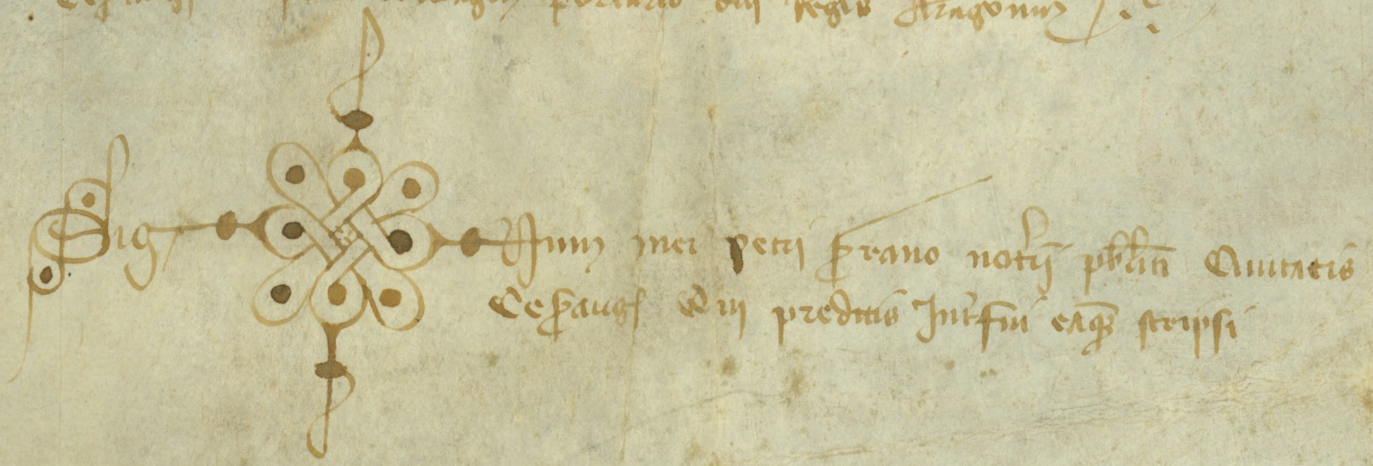 portario dni Regis Aragonum
Sig num mei petri notrii pblici Ciuitatis
Cesaraug Qui predictis Interfui eaque scripsi